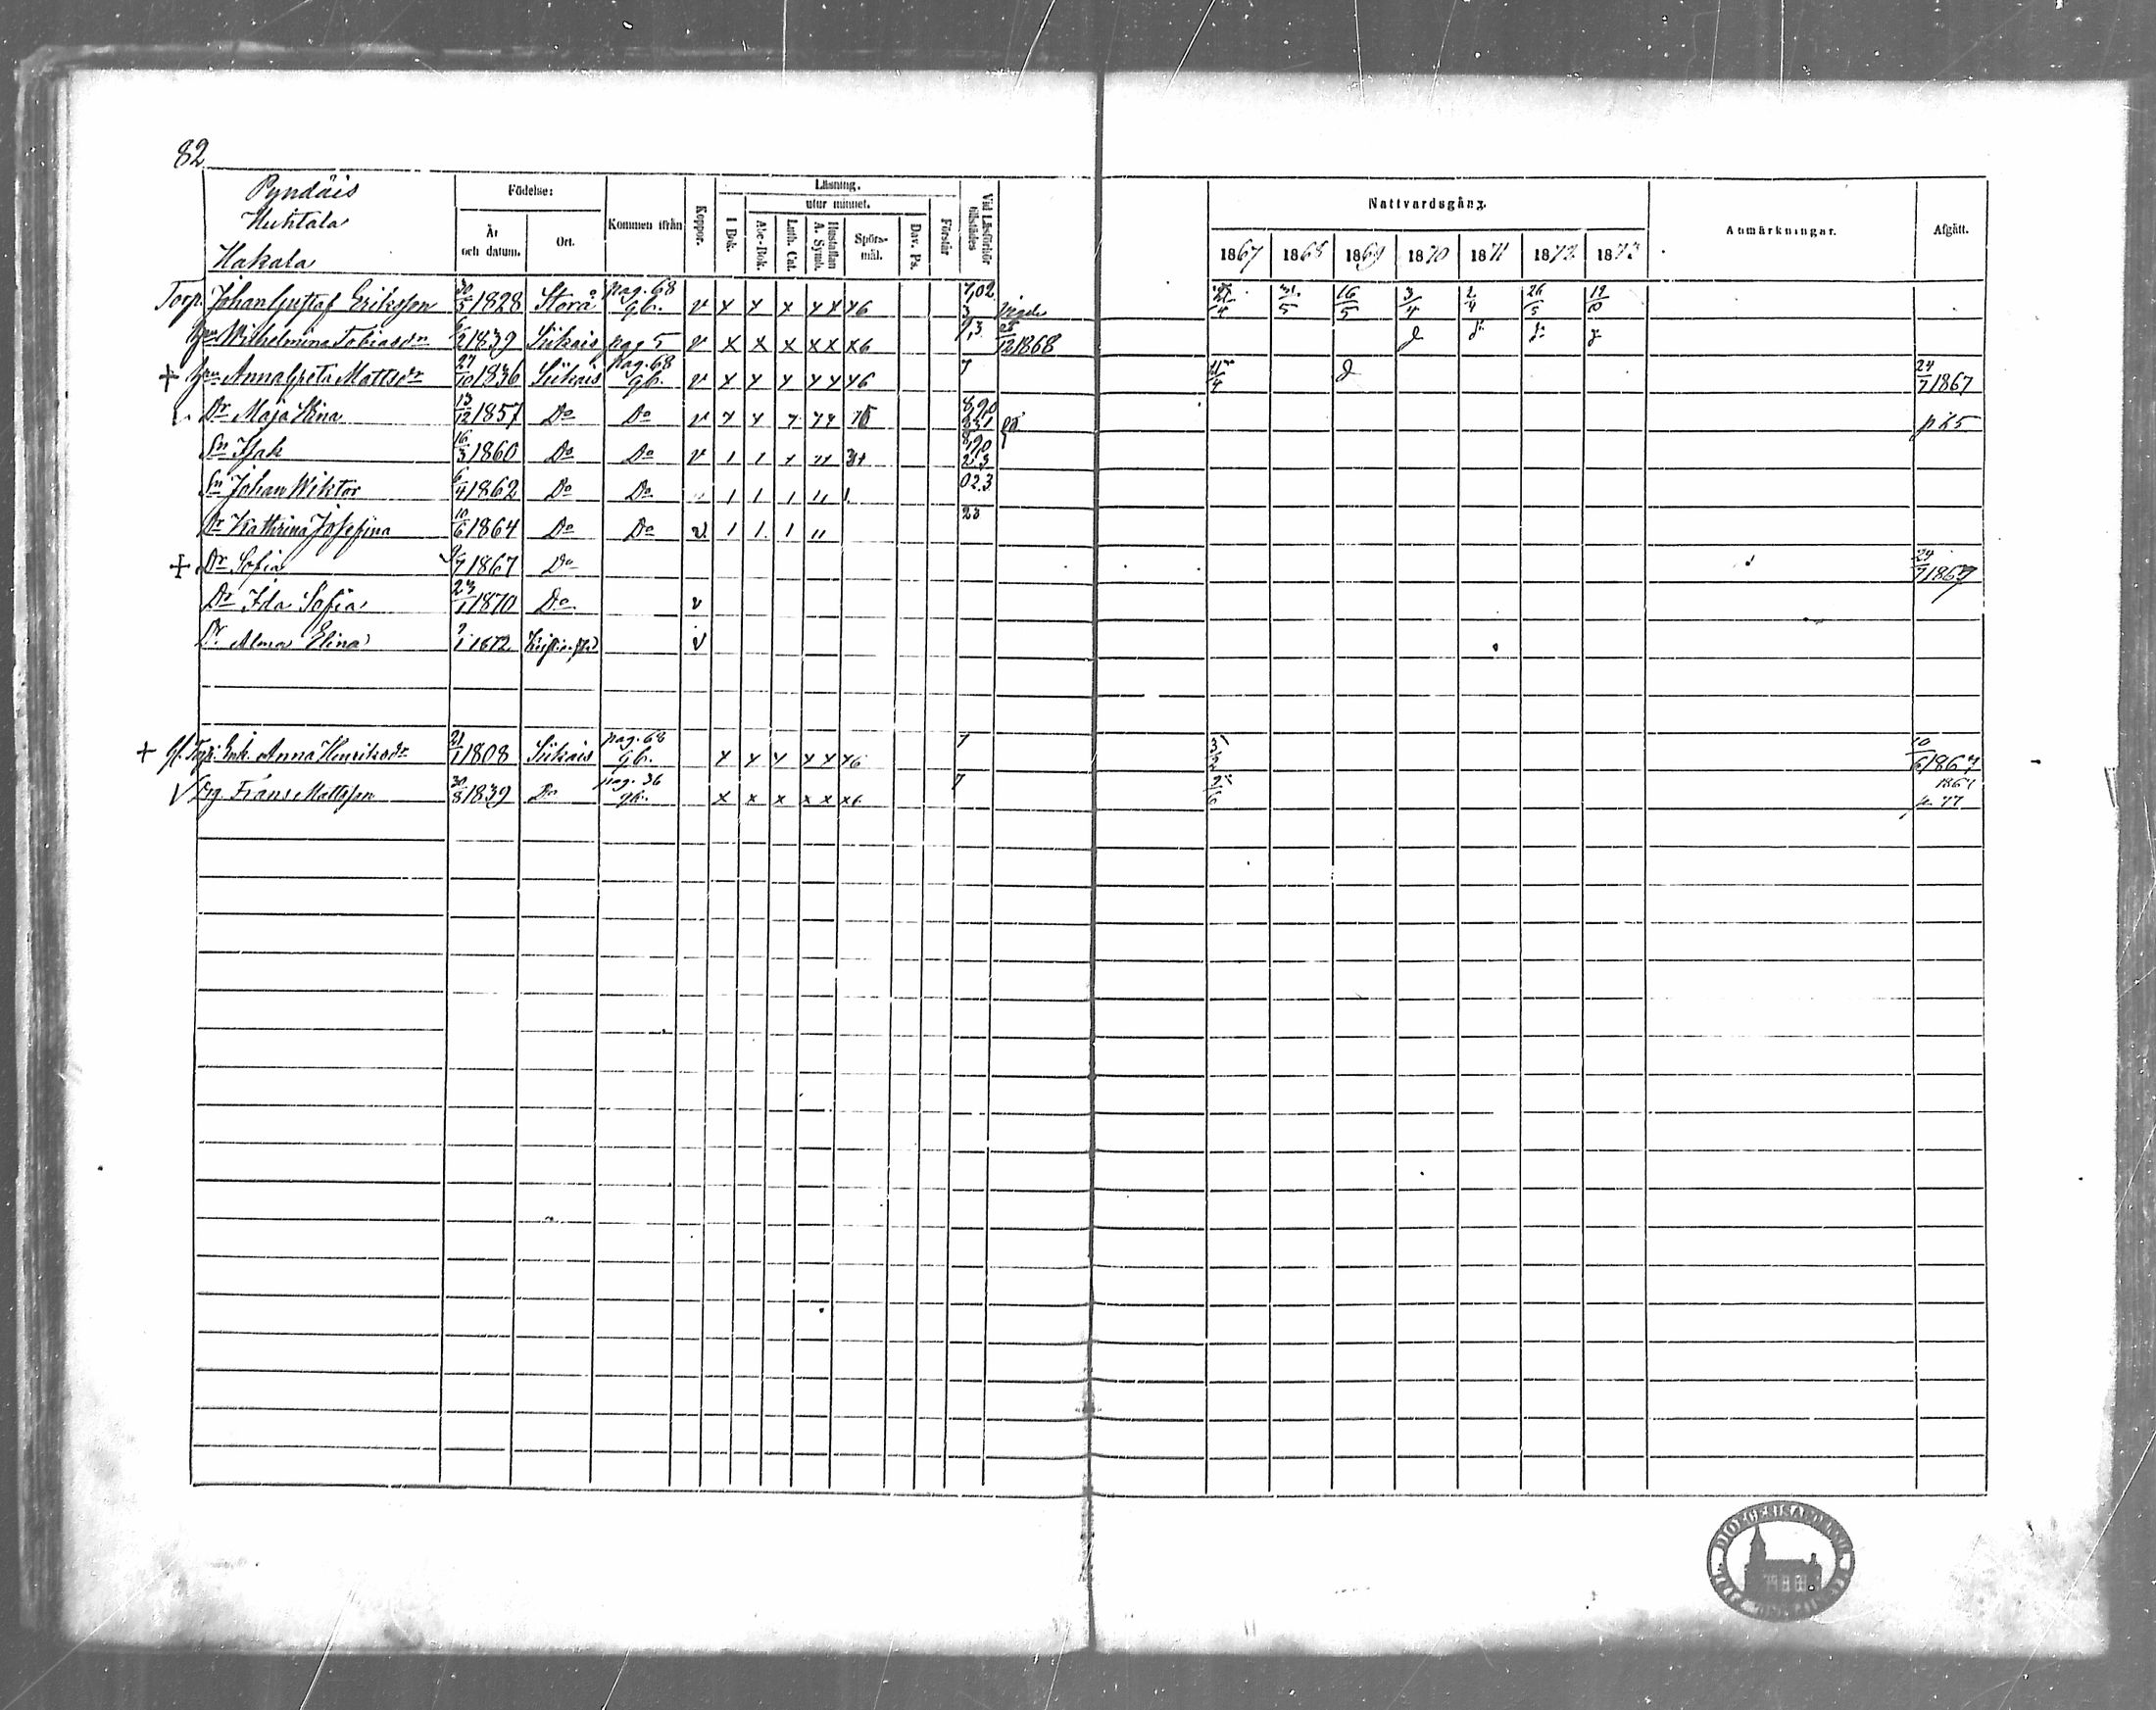 82
Pyndäis
Huhtala
Hakala
Födelse:
År och datum.
Ort.
Kommen ifrån
Koppor.
Läsning.
I Bok.
utur minnet.
Abc-Bok.
Luth. Cat.
Hustaflan A. Symb.
Spörs-mål.
Dav. Ps.
Förstår
Vid Läsförhör tillstädes
Nattvardsgång.
1867 1868 1869 1870 1871 1872 1873
Anmärkningar.
Afgått.
Torp. Johan Gustaf Eriksson 30/5 1828 Storå pag. 68 gb. v x x x x x x6 7,02 3 16/5 3/4 2/4 26/5
Hu Wilhelmina Tobiasdr 1839 Siikais pag 5 v x x x x x x6 7,3 Vigde 12 1868
+ Hu Anna Greta Mattsdr 27/10 1836 Siikais pag. 68 gb. v x x x x x x6 7 24/7 1867
Dr Maja Stina 13/12 1857 Do Do v 8,9,0 p 65
Sn Isak 16/3 1860 Do Do v 1 1 8,9,0 2.3
Sn Johan Wiktor 6/4 1862 Do Do 1 1 1 11 1 02.3
Dr Kathrina Josefina 10/6 1864 Do Do v 1 1 1 11 23
+ Dr Sofia 9/7 1867 Do 24/7 1867
Dr Ida Sofia 23/1 1870 Do v
Dr Alma Elina 1872 v
+ Gl. Torp. Enk. Anna Henriksdr 21/1 1808 Siikais pag. 68 gb. x x x x x x6 7 10/6 1867
V Drg Frans Mattsson 30/8 1839 Do pag. 36 gb. x x x x x x6 7 1867 p. 77